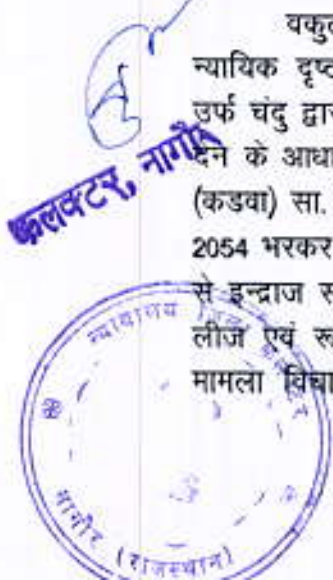 वकुल
न्यायिक दृष्ट
उर्फ चंदु द्वार
देने के आधा
(कडवा) सा.
2054 भरकर
से इन्द्राज स
लीज एवं रू
मामला विचा
कलक्टर, नागौर
न्यायालय जिला कलक्टर
नागौर (राजस्थान)